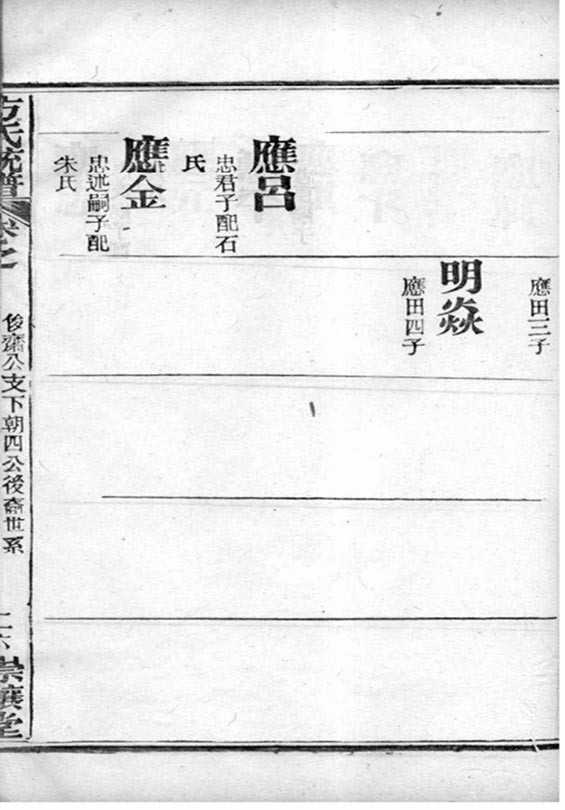 應呂
忠君子配石
氏
應金
忠述嗣子配
朱氏
應田三子
明焱
應田四子
方氏統譜
卷之
俊齋公支下朝四公後裔世系
崇讓堂